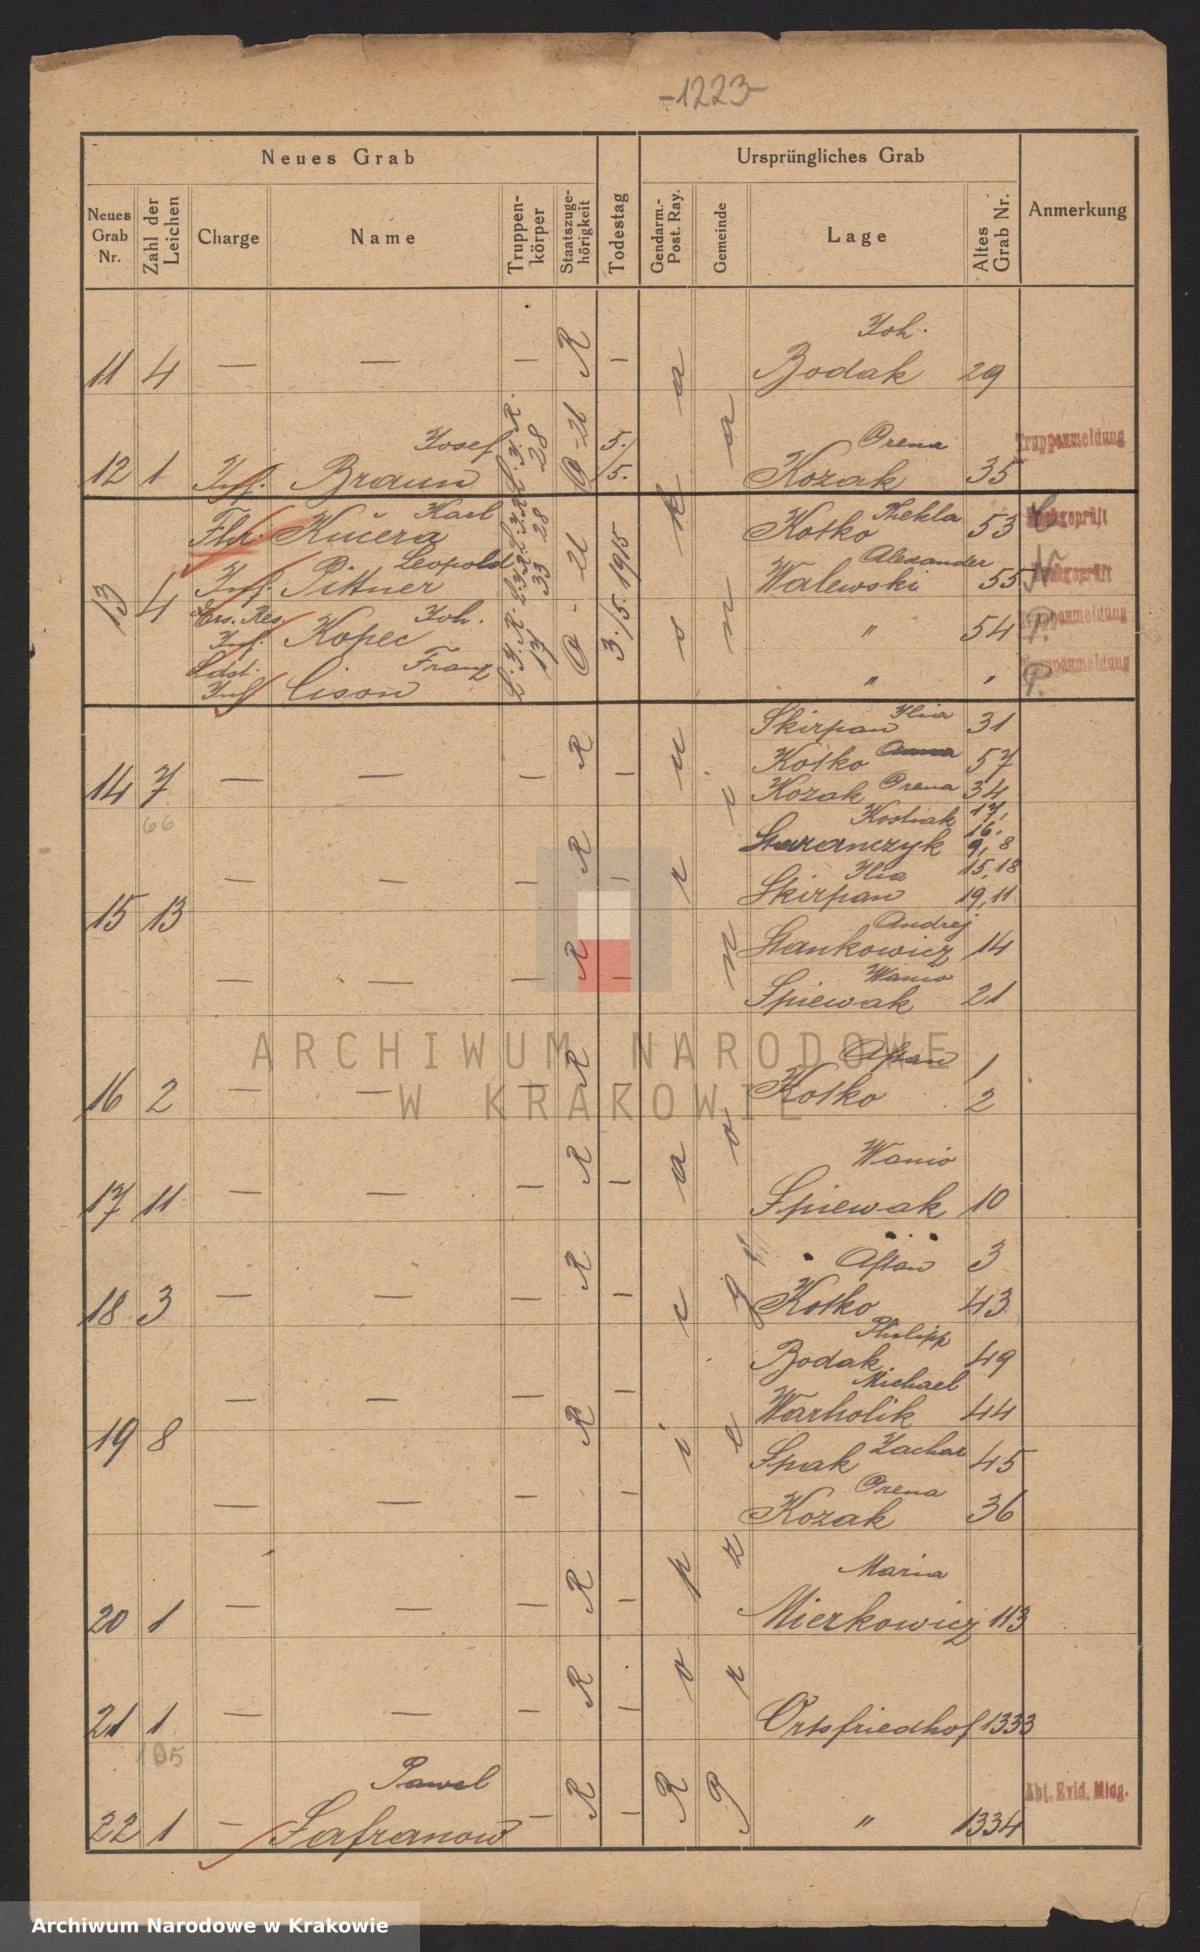 -1223-
Neues Grab
Ursprüngliches Grab
Neues Grab Nr.
Zahl der Leichen
Charge
Name
Truppenkörper
Staatszugehörigkeit
Todestag
Gendarm.-Post. Ray.
Gemeinde
Lage
Altes Grab Nr.
Anmerkung
Ropica ruska
Przegonina
11 4 — — — R — Joh. Bodak 29
12 1 Inf. Braun Josef L.I.R. 28 O-U 5./5. Orena Kozak 35 Truppenmeldung
13 4 O-U 3./5. 1915
Fhr. Kučera Karl L.I.R. 28 Kotko Thekla 53 Nachgeprüft
Inf. Pittner Leopold L.I.R. 33 Walewski Alexander 55 Nachgeprüft
Ers. Res. Inf. Kopec Joh. L.I.R. 17 " 54 Truppenmeldung P.
Ldst. Inf. Cison Franz " " Truppenmeldung P.
14 7 — — — R — Skirpan Ilia 31
Kotko 57
Kozak Orena 34
66
15 13 — — — R — Kostiak Staranczyk 17, 16, 9, 8
Ilia Skirpan 15, 18 19, 11
— — — R — Andrej Stankowicz 14
Wanio Spiewak 21
16 2 — — — R Aftan Kotko 1 2
17 11 — — — R — Wanio Spiewak 10
18 3 — — — R — Aftan Kotko 3 43
19 8 — — — R — Philipp Bodak 49
Michael Warholik 44
— — — — Spak Zachar 45
Orena Kozak 36
20 1 — — — R — Maria Mierkowicz 113
21 1 — — — R — Ortsfriedhof 1333
105
22 1 — Pawel Safranow — R — " 1334 Abt. Evid. Mldg.
ARCHIWUM NARODOWE
W KRAKOWIE
Archiwum Narodowe w Krakowie